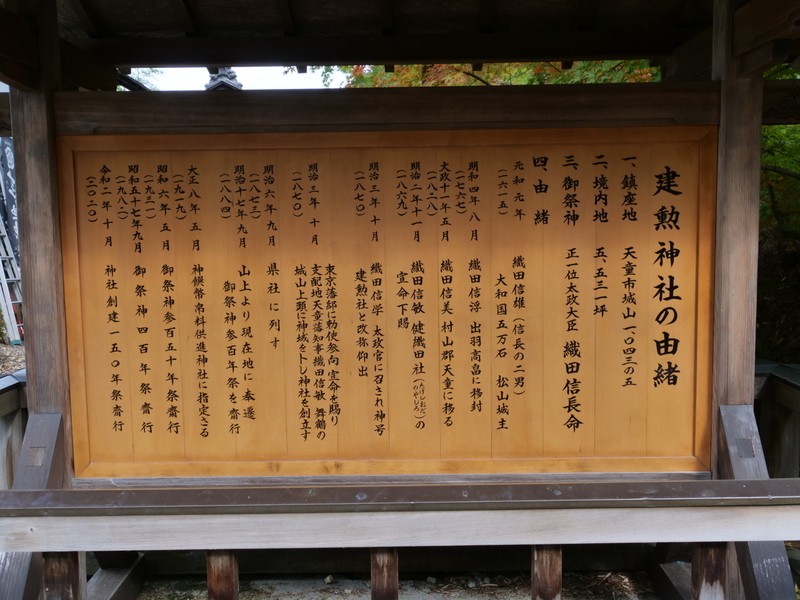 建勲神社の由緒
一、鎮座地　天童市城山一、〇四三の五
二、境内地　五、五三一坪
三、御祭神　正一位太政大臣　織田信長命
四、由緒
元和元年　織田信雄（信長の二男）
（一六一五）　大和国五万石　松山城主
明和四年八月　織田信浮　出羽高畠に移封
（一七六七）
文政十一年五月　織田信美　村山郡天童に移る
（一八二八）
明治二年十一月　織田信敏　健織田社（たけしおだのやしろ）の
（一八六九）　宣命下賜
明治三年十月　織田信学　太政官に召され神号
（一八七〇）　建勲社と改称仰出
東京藩邸に勅使参向　宣命を賜り
明治三年十月　支配地天童藩知事織田信敏　舞鶴の
（一八七〇）　城山上頭に神域を卜し神社を創立す
明治六年九月　県社に列す
（一八七三）
明治十七年九月　山上より現在地に奉遷
（一八八四）　御祭神参百年祭を齋行
大正八年五月　神饌幣帛料供進神社に指定さる
（一九一九）
昭和六年五月　御祭神参百五十年祭齋行
（一九三一）
昭和五十七年九月　御祭神四百年祭齋行
（一九八二）
令和二年十月　神社創建一五〇年祭齋行
（二〇二〇）